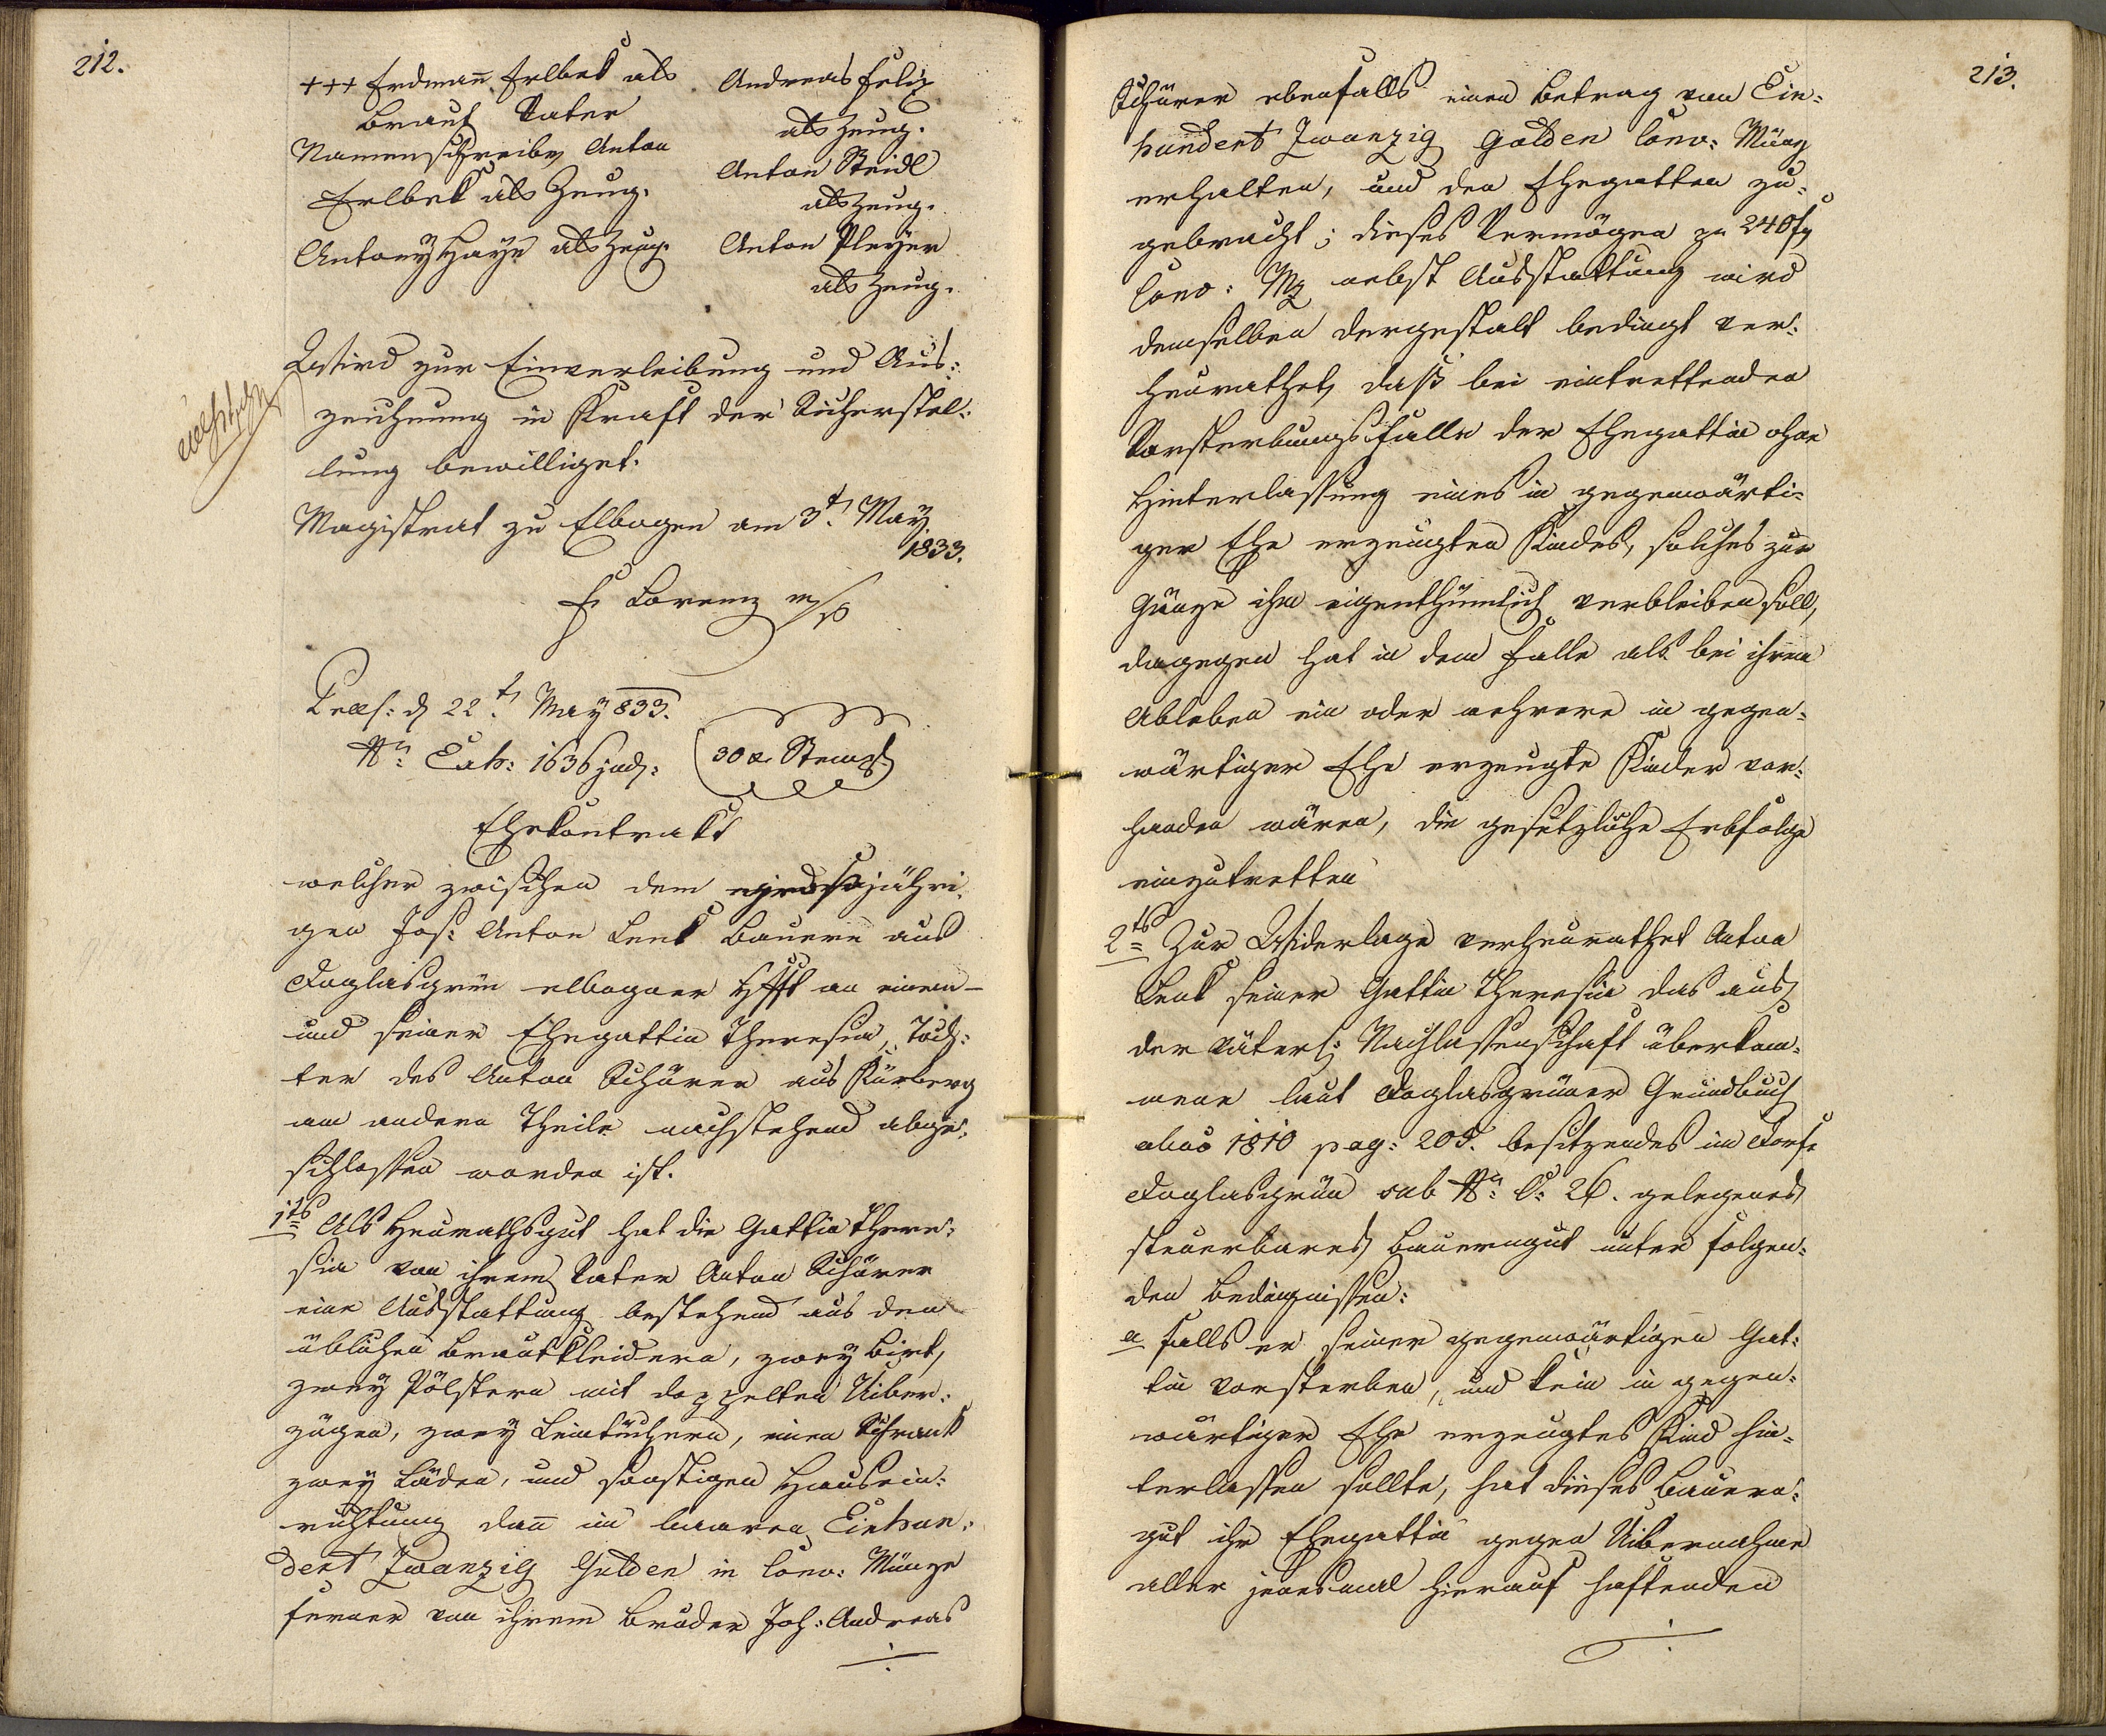 212.
+++ Erdman̄ Erlbek als
Braut Vater
Namenschreiber Anton
Erlbek als Zeug.
Antony Haÿn als Zeug.
Andreas Feliz
als Zeug.
Anton Steidl
als Zeug.
Anton Pleyer
als Zeug.
Wird zur Einverleibung und Aus:
zeichnung in Kraft der Sicherstel:
lung bewilliget.
Magistrat zu Elbogen am 3t. May
1833.
Fr Lorenz m/p
d 22t. May 833.
Nro: Exh: 1636 jud:
30 xr Stempl
Ehekontrakt
welcher zwischen dem großjähri
gen Jos: Anton Lenk Bauern aus
Doglasgrün elbogner Hftt an einem –
und seiner Ehegattin Theresia, Toch:
ter des Anton Schürer aus Kürberg
am andern Theile nachstehend abge:
schlossen worden ist.
1tns Als Heurathsgut hat die Gattin There:
sia von ihrem Vater Anton Schürer
eine Ausstattung bestehend aus den
üblichen Brautkleidern, zwey Bett,
zwey Pölstern mit doppelten Uiber:
zügen, zwey Leintüchern, einen Schrank
zwey Läden, und sonstigen Hausein:
richtung dan̄ im baaren Einhun:
dert Zwanzig Gulden in Conv: Münze
ferner von ihrem Bruder Joh: Andreas
213.
Schürer ebenfalls einen Betrag von Ein:
hundert Zwanzig Gulden Conv: Münz
erhalten, und den Ehegatten zu:
gebracht; dieses Vermögen zu 240 fr
Conv: Mz nebst Ausstattung wird
demselben dergestalt bedingt ver:
heurathet, daß bei eintrettenden
Vorsterbungsfalle der Ehegattin ohne
Hinterlassung eines in gegenwärti:
ger Ehe erzeugten Kindes, solches zur
Gänze ihm eigenthümlich verbleiben soll,
dagegen hat in dem Falle als bei ihrem
Ableben ein oder mehrere in gegen:
wärtiger Ehe erzeugte Kinder vor:
handen wären, die gesetzliche Erbfolge
einzutretten
2tns Zur Widerlage verheurathet Anton
Lenk seiner Gattin Theresia das aus
der väterl: Nachlassenschaft überkom:
mene laut Doglasgrüner Grundbuch
1810 pag: 205. besitzendes im Dorfe
Doglasgrün sub Nro: C: 26. gelegenes
steuerbares Bauerngut unter folgen:
den Bedingnissen:
a falls er seiner gegenwärtigen Gat:
tin vorsterben, und kein in gegen:
wärtiger Ehe erzeugtes Kind hin:
terlassen sollte, hat dieses Bauern:
gut ihr Ehegattin gegen Uibernahme
aller jenesmal hierauf haftenden